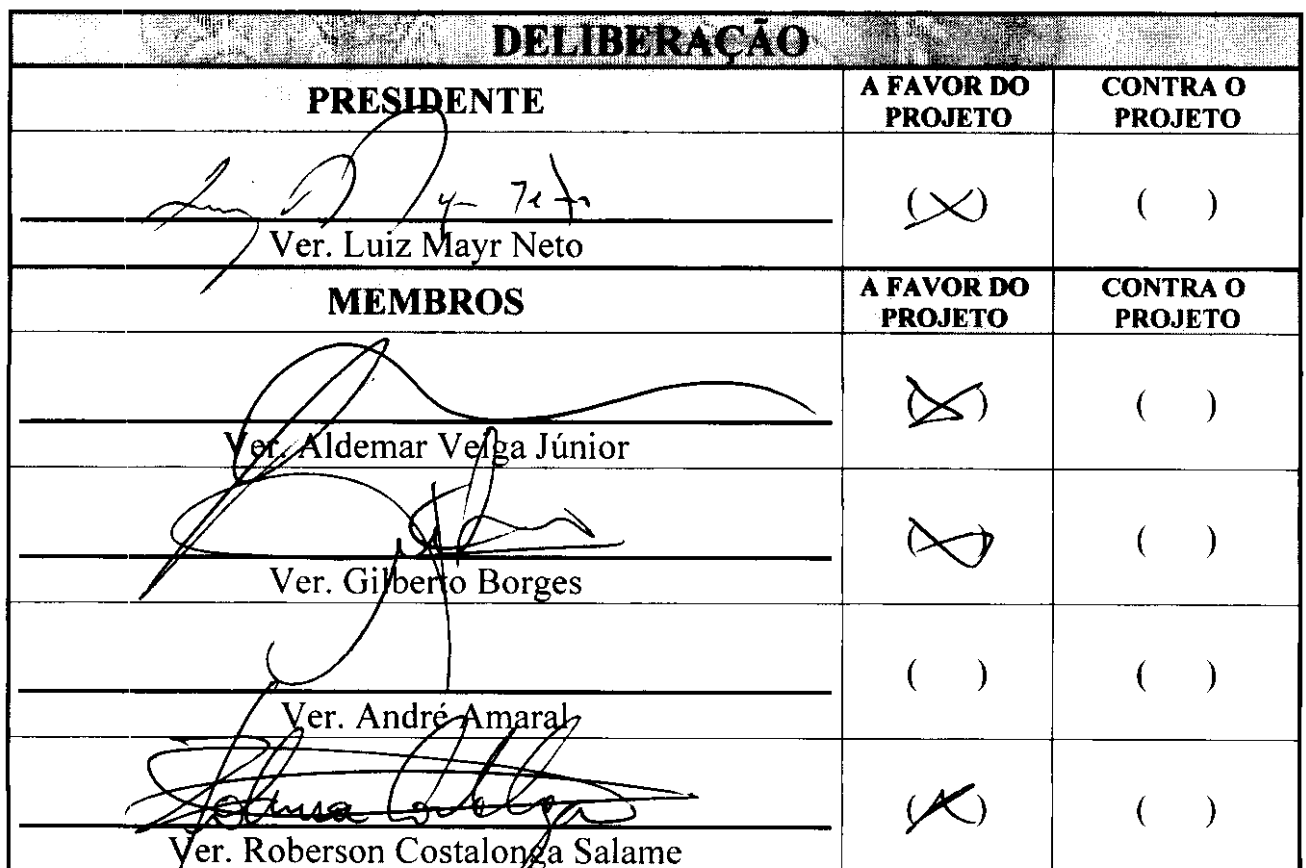 DELIBERAÇÃO
PRESIDENTE
A FAVOR DO PROJETO
CONTRA O PROJETO
(X)
( )
Ver. Luiz Mayr Neto
MEMBROS
A FAVOR DO PROJETO
CONTRA O PROJETO
(X)
( )
Ver. Aldemar Veiga Júnior
(X)
( )
Ver. Gilberto Borges
( )
( )
Ver. André Amaral
(X)
( )
Ver. Roberson Costalonga Salame